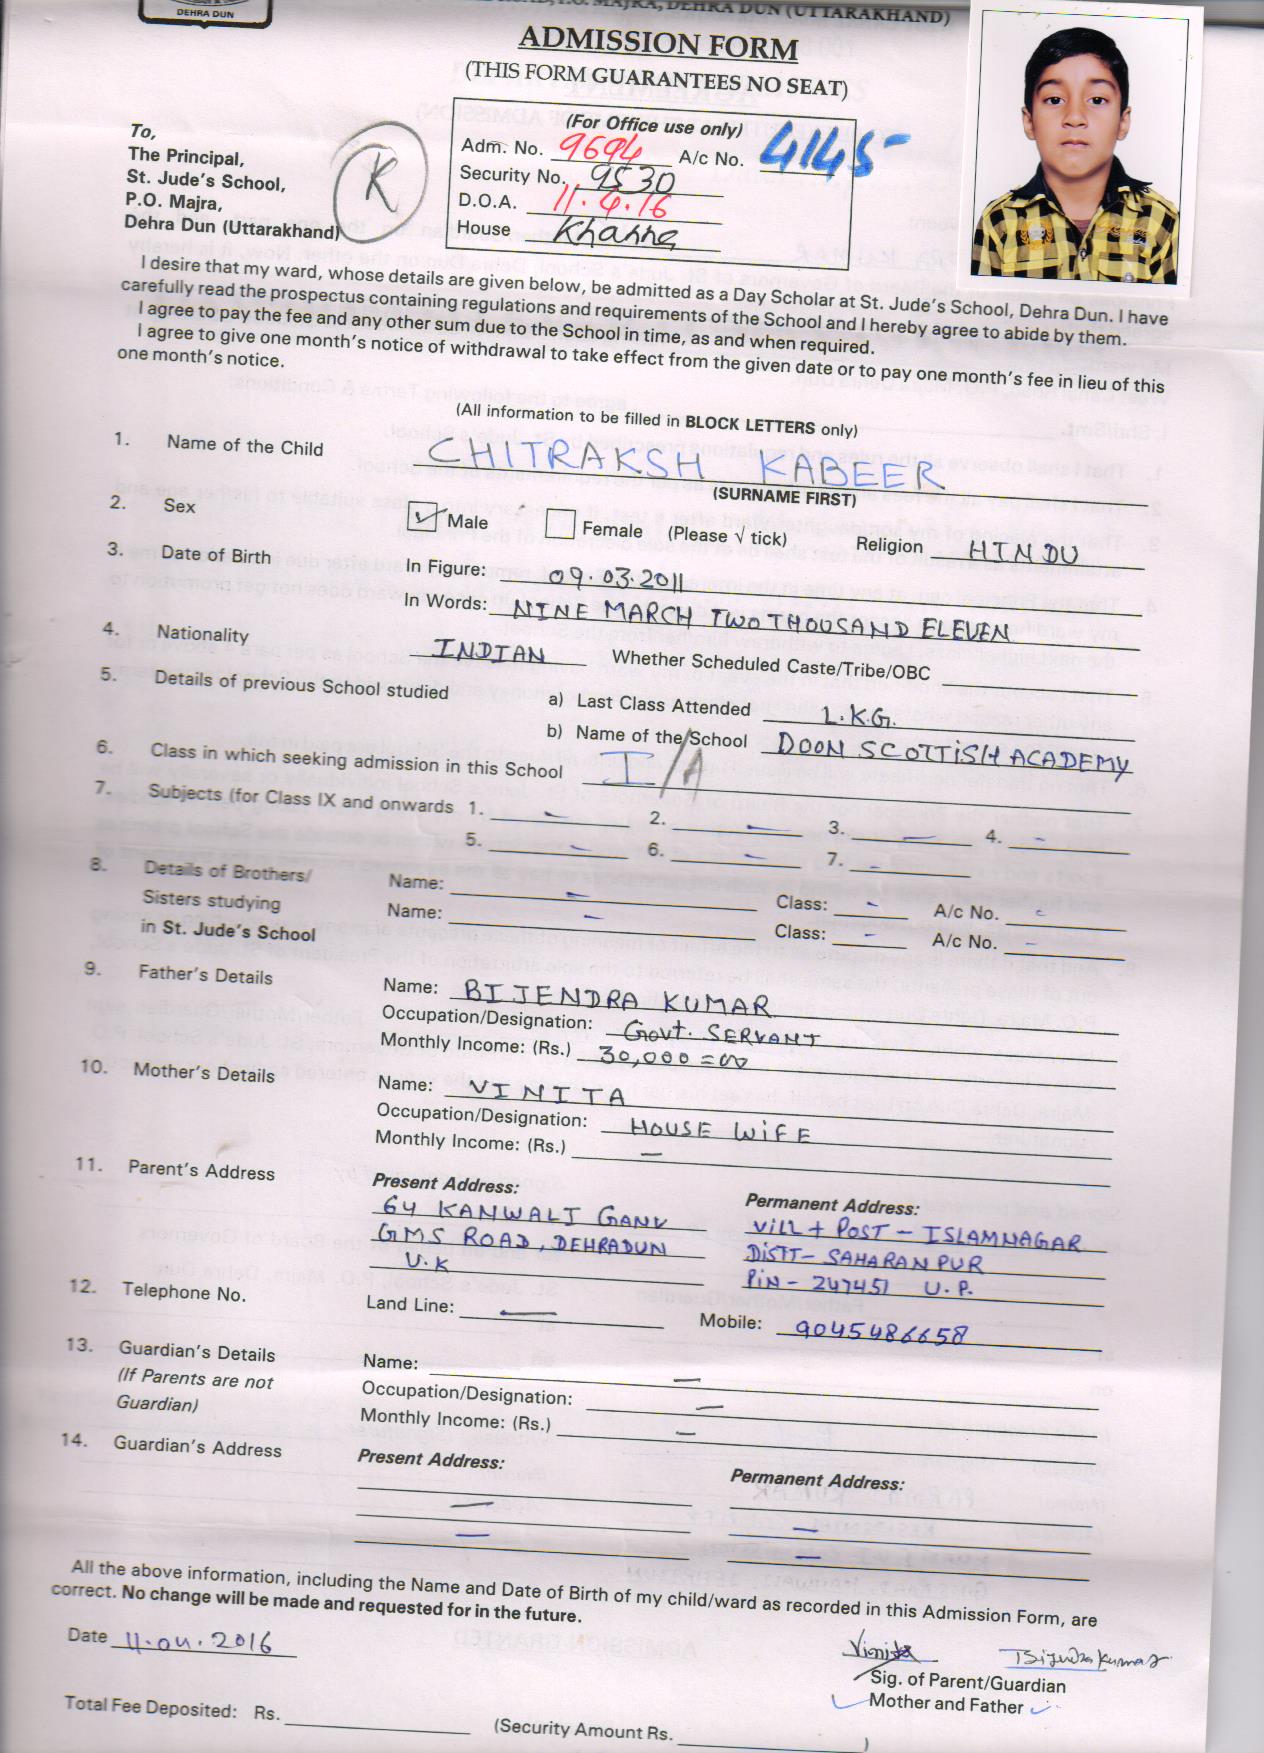 DEHRA DUN
MAJRA, DEHRA DUN (UTTARAKHAND)
ADMISSION FORM
(THIS FORM GUARANTEES NO SEAT)
(For Office use only)
Adm. No. 9694 A/c No. 4145
Security No. 9530
D.O.A. 11.4.16
House Khanna
To,
The Principal,
St. Jude's School,
P.O. Majra,
Dehra Dun (Uttarakhand)
R
I desire that my ward, whose details are given below, be admitted as a Day Scholar at St. Jude's School, Dehra Dun. I have
carefully read the prospectus containing regulations and requirements of the School and I hereby agree to abide by them.
I agree to pay the fee and any other sum due to the School in time, as and when required.
I agree to give one month's notice of withdrawal to take effect from the given date or to pay one month's fee in lieu of this
one month's notice.
(All information to be filled in BLOCK LETTERS only)
1. Name of the Child CHITRAKSH KABEER
(SURNAME FIRST)
2. Sex Male Female (Please √ tick) Religion HINDU
3. Date of Birth In Figure: 09.03.2011
In Words: NINE MARCH TWO THOUSAND ELEVEN
4. Nationality INDIAN Whether Scheduled Caste/Tribe/OBC
5. Details of previous School studied a) Last Class Attended L.K.G.
b) Name of the School DOON SCOTTISH ACADEMY
6. Class in which seeking admission in this School I/A
7. Subjects (for Class IX and onwards 1. - 2. - 3. - 4. -
5. - 6. - 7. -
8. Details of Brothers/ Name: - Class: - A/c No. -
Sisters studying Name: - Class: - A/c No. -
in St. Jude's School
9. Father's Details Name: BIJENDRA KUMAR
Occupation/Designation: GOVT. SERVANT
Monthly Income: (Rs.) 30,000=00
10. Mother's Details Name: VINITA
Occupation/Designation: HOUSE WIFE
Monthly Income: (Rs.) -
11. Parent's Address Present Address: Permanent Address:
64 KANWALI GANV VILL + POST - ISLAMNAGAR
GMS ROAD, DEHRADUN DISTT- SAHARANPUR
U.K PIN - 247451 U.P.
12. Telephone No. Land Line: - Mobile: 9045486658
13. Guardian's Details Name: -
(If Parents are not Occupation/Designation: -
Guardian) Monthly Income: (Rs.) -
14. Guardian's Address Present Address: Permanent Address:
-
- -
-
All the above information, including the Name and Date of Birth of my child/ward as recorded in this Admission Form, are
correct. No change will be made and requested for in the future.
Date 11.04.2016 Vinita Bijendra Kumar
Sig. of Parent/Guardian
Mother and Father
Total Fee Deposited: Rs. (Security Amount Rs. )